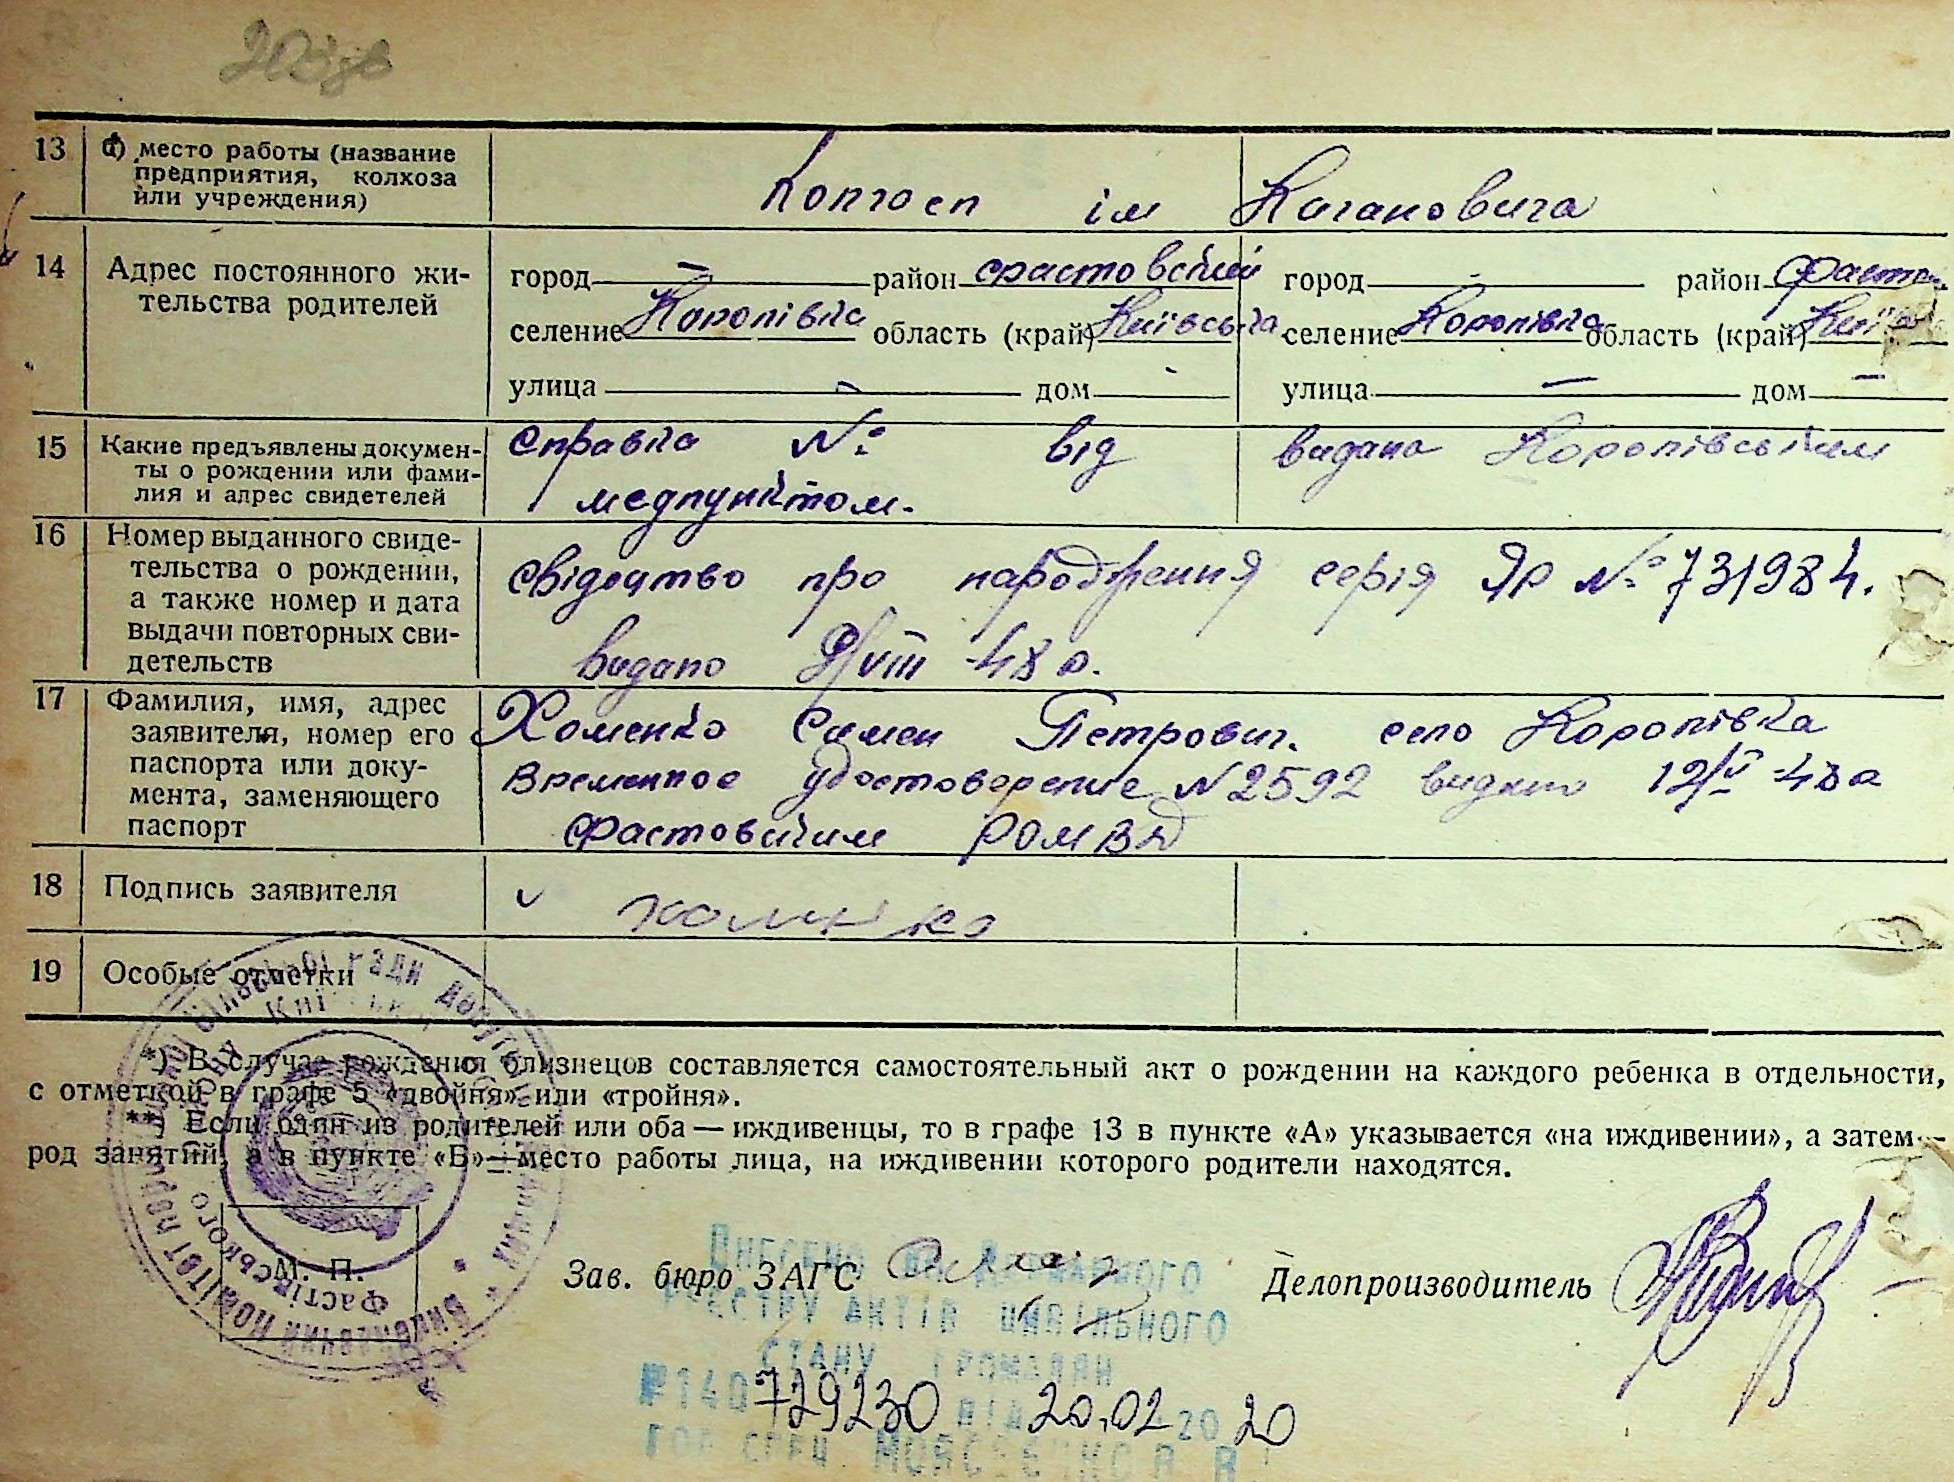 13 б) место работы (название
предприятия, колхоза
или учреждения)
Колгосп ім Кагановича
14 Адрес постоянного жи-
тельства родителей
город — район Фастовский город - район Фастов
селение Королівка область (край) Київська селение Королівка область (край) Київ
улица — дом - улица — дом —
15 Какие предъявлены докумен-
ты о рождении или фами-
лия и адрес свидетелей
Справка № від видана Королівським
медпунктом.
16 Номер выданного свиде-
тельства о рождении,
а также номер и дата
выдачи повторных сви-
детельств
Свідоцтво про народження серія ЯР № 731984.
видано VIII-48 р.
17 Фамилия, имя, адрес
заявителя, номер его
паспорта или доку-
мента, заменяющего
паспорт
Хоменко Семен Петрович. село Королівка
Временное удостоверение N 2592 видано 12/V-48 р
Фастовским РОМВД
18 Подпись заявителя
v Хоменко
19 Особые отметки
*) В случае рождения близнецов составляется самостоятельный акт о рождении на каждого ребенка в отдельности,
с отметкой в графе 5 «двойня» или «тройня».
**) Если один из родителей или оба — иждивенцы, то в графе 13 в пункте «А» указывается «на иждивении», а затем —
род занятий, а в пункте «Б» — место работы лица, на иждивении которого родители находятся.
М. П.
Зав. бюро ЗАГС Делопроизводитель
Внесено до Державного
реєстру актів цивільного
стану громадян
№140729230 від 20.02 2020